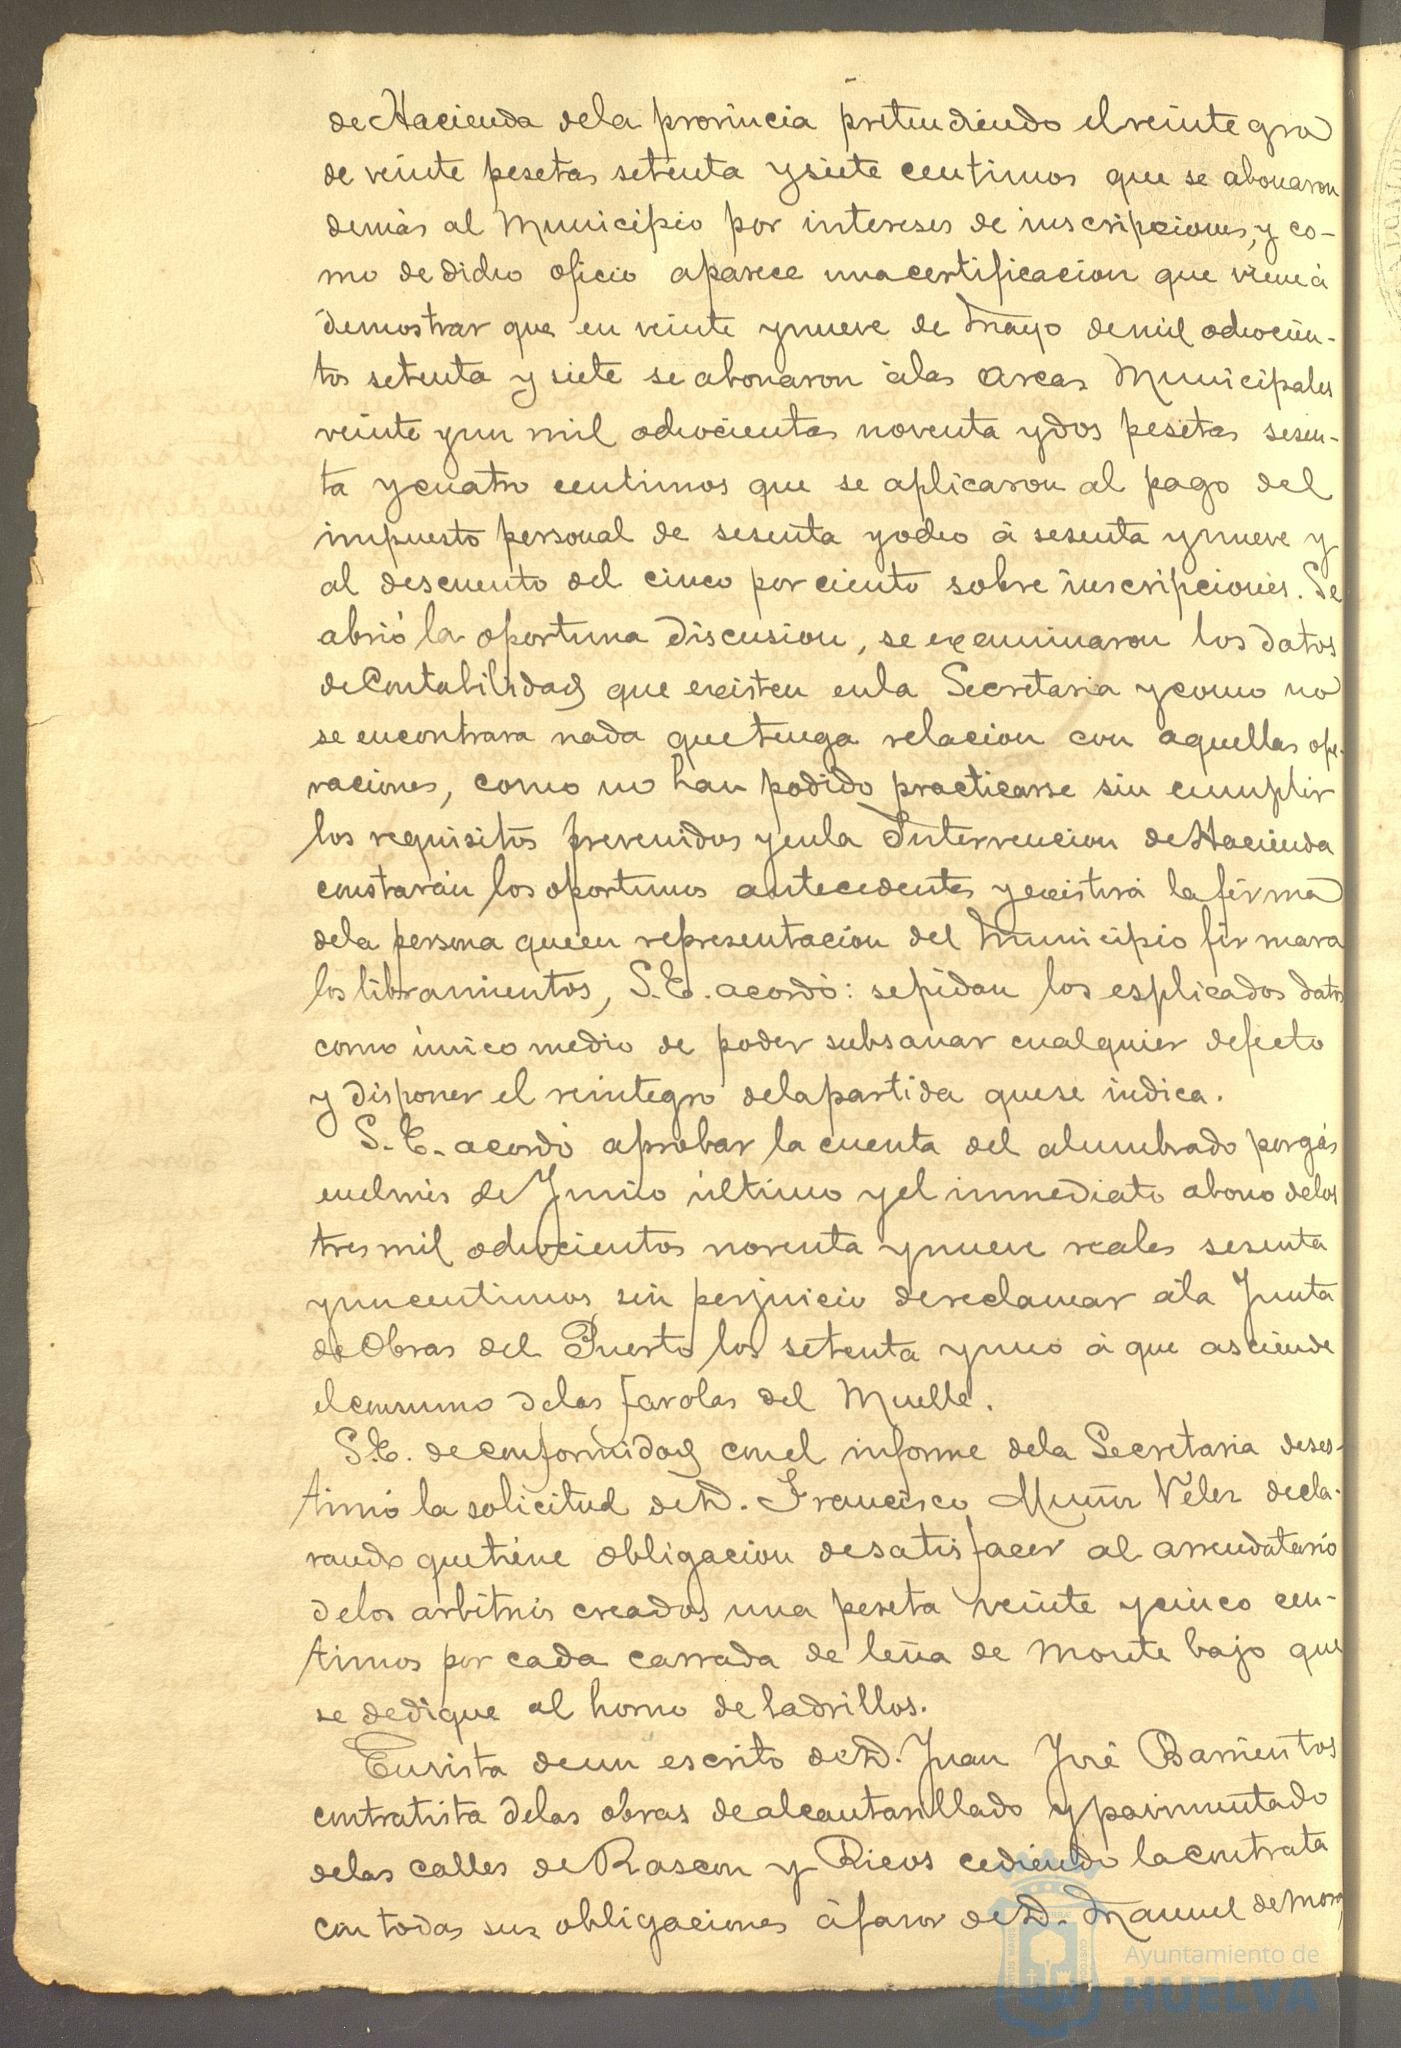 de Hacienda de la provincia pretendiendo el reintegro
de veinte pesetas setenta y siete centimos que se abonaron
demás al Municipio por intereses de inscripciones, y co-
mo de dicho oficio aparece una certificacion que viene á
demostrar que en veinte y nueve de Mayo de mil ochocien-
tos setenta y siete se abonaron á las arcas Municipales
veinte y un mil ochocientas noventa y dos pesetas sesen-
ta y cuatro centimos que se aplicaron al pago del
impuesto personal de sesenta y ocho á sesenta y nueve y
al descuento del cinco por ciento sobre inscripciones. Se
abrió la oportuna discusion, se examinaron los datos
de Contabilidad que existen en la Secretaria y como no
se encontrara nada que tenga relacion con aquellas ope-
raciones, como no han podido practicarse sin cumplir
los requisitos prevenidos y en la Intervencion de Hacienda
constarán los oportunos antecedentes y existirá la firma
de la persona que en representacion del Municipio firmara
los libramientos, S.E. acordó: se pidan los esplicados datos
como único medio de poder subsanar cualquier defecto
y disponer el reintegro de la partida que se indica.
S.E. acordó aprobar la cuenta del alumbrado por gás
en el mes de Junio último y el inmediato abono de los
tres mil ochocientos noventa y nueve reales sesenta
y un centimos sin perjuicio de reclamar á la Junta
de Obras del Puerto los setenta y uno á que asciende
el consumo de las farolas del Muelle.
S.E. de conformidad con el informe de la Secretaria deses-
timó la solicitud de D. Francisco Muñoz Vélez decla-
rando que tiene obligacion de satisfacer al arrendatario
de los arbitrios creados una peseta veinte y cinco cen-
timos por cada carrada de leña de monte bajo que
se dedique al horno de ladrillos.
En vista de un escrito de D. Juan José Barrientos
contratista de las obras de alcantarillado y pavimentado
de las calles de Rascon y Ricos cediendo la contrata
con todas sus obligaciones á favor de D. Manuel de Mora
Ayuntamiento de
HUELVA